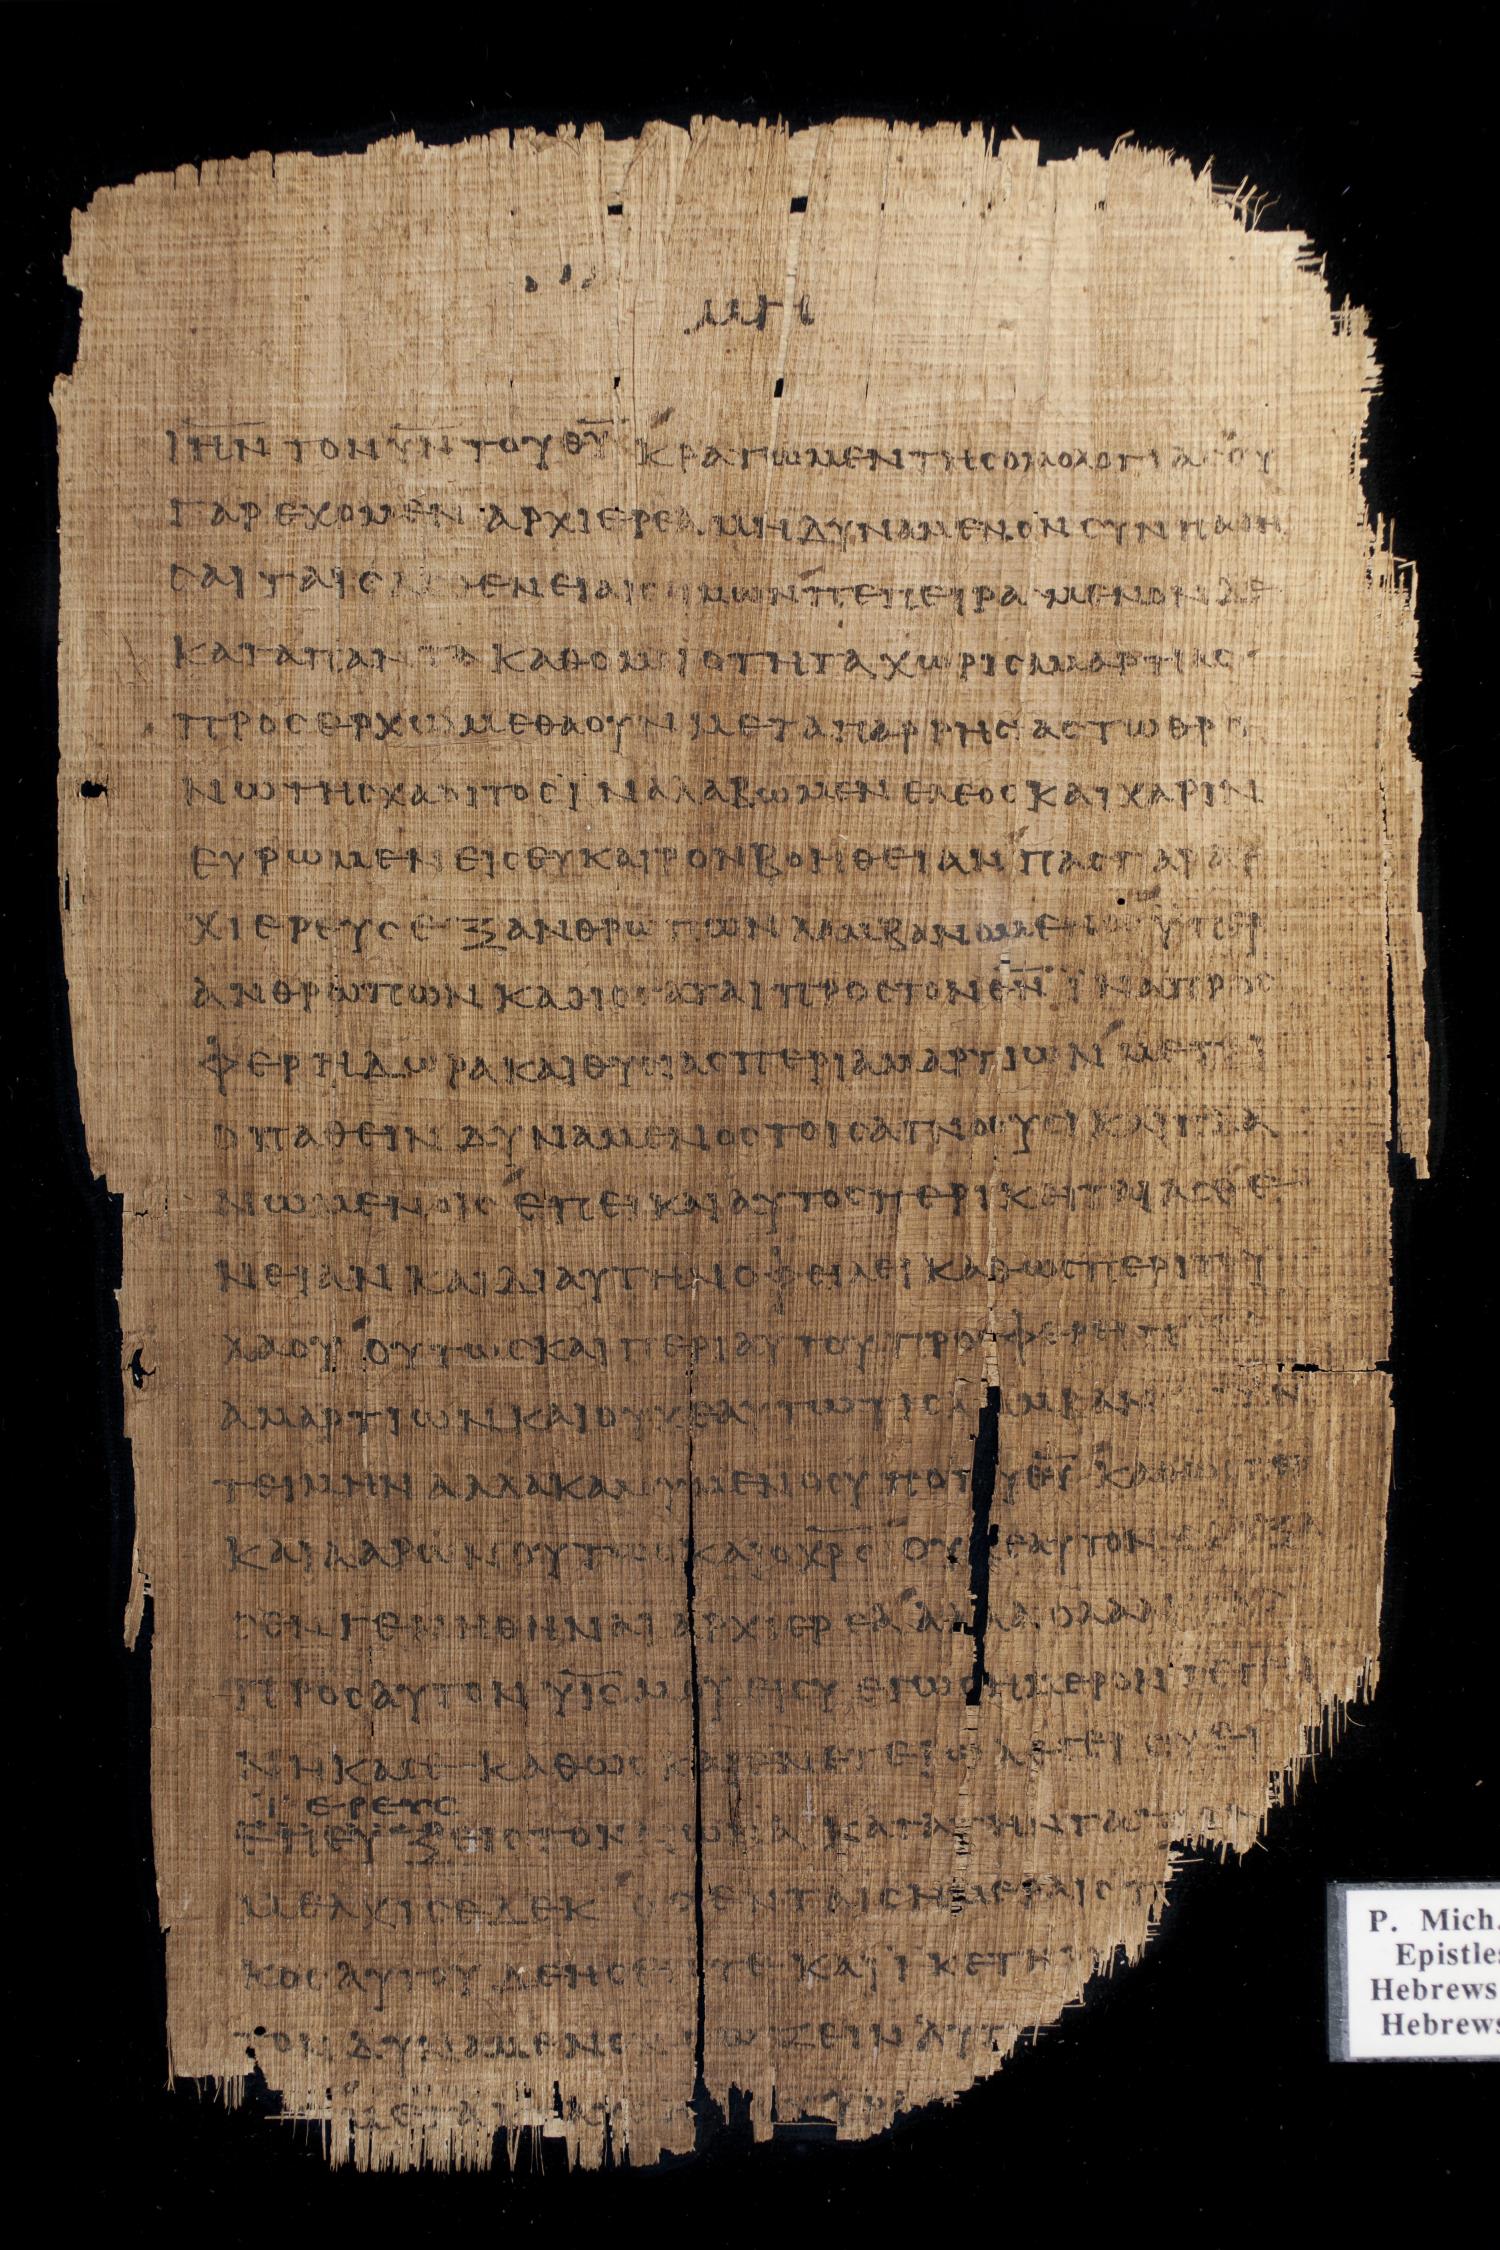 μη
ΙΗΝ ΤΟΝ ΥΝ ΤΟΥ ΘΥ ΚΡΑΤΩΜΕΝ ΤΗΣ ΟΜΟΛΟΓΙΑΣ ΟΥ
ΓΑΡ ΕΧΟΜΕΝ ΑΡΧΙΕΡΕΑ ΜΗ ΔΥΝΑΜΕΝΟΝ ΣΥΝΠΑΘΗ
ΣΑΙ ΤΑΙΣ ΑΣΘΕΝΕΙΑΙΣ ΗΜΩΝ ΠΕΠΕΙΡΑΜΕΝΟΝ ΔΕ
ΚΑΤΑ ΠΑΝΤΑ ΚΑΘ ΟΜΟΙΟΤΗΤΑ ΧΩΡΙΣ ΑΜΑΡΤΙΑΣ
ΠΡΟΣΕΡΧΩΜΕΘΑ ΟΥΝ ΜΕΤΑ ΠΑΡΡΗΣΑΣ ΤΩ ΘΡΟ
ΝΩ ΤΗΣ ΧΑΡΙΤΟΣ ΙΝΑ ΛΑΒΩΜΕΝ ΕΛΕΟΣ ΚΑΙ ΧΑΡΙΝ
ΕΥΡΩΜΕΝ ΕΙΣ ΕΥΚΑΙΡΟΝ ΒΟΗΘΕΙΑΝ ΠΑΣ ΓΑΡ ΑΡ
ΧΙΕΡΕΥΣ ΕΞ ΑΝΘΡΩΠΩΝ ΛΑΜΒΑΝΟΜΕΝΟΣ ΥΠΕΡ
ΑΝΘΡΩΠΩΝ ΚΑΘΙΣΤΑΤΑΙ ΠΡΟΣ ΤΟΝ ΘΝ ΙΝΑ ΠΡΟΣ
ΦΕΡΗ ΔΩΡΑ ΚΑΙ ΘΥΣΙΑΣ ΠΕΡΙ ΑΜΑΡΤΙΩΝ ΜΕΤΡΙ
ΟΠΑΘΕΙΝ ΔΥΝΑΜΕΝΟΣ ΤΟΙΣ ΑΓΝΟΟΥΣΙ ΚΑΙ ΠΛΑ
ΝΩΜΕΝΟΙΣ ΕΠΕΙ ΚΑΙ ΑΥΤΟΣ ΠΕΡΙΚΕΙΤΑΙ ΑΣΘΕ
ΝΕΙΑΝ ΚΑΙ ΔΙ ΑΥΤΗΝ ΟΦΕΙΛΕΙ ΚΑΘΩΣ ΠΕΡΙ ΤΟΥ
ΛΑΟΥ ΟΥΤΩΣ ΚΑΙ ΠΕΡΙ ΑΥΤΟΥ ΠΡΟΣΦΕΡΕΙΝ
ΑΜΑΡΤΙΩΝ ΚΑΙ ΟΥΧ ΕΑΥΤΩ ΤΙΣ ΛΑΜΒΑΝ
ΤΕΙΜΗΝ ΑΛΛΑ ΚΑΛΟΥΜΕΝΟΣ ΥΠΟ ΤΟΥ ΘΥ ΚΑΘΩΣΠΕΡ
ΚΑΙ ΑΑΡΩΝ ΟΥΤΩΣ ΚΑΙ Ο ΧΡΣ ΟΥΧ ΕΑΥΤΟΝ ΕΔΟΞΑ
ΣΕΝ ΓΕΝΗΘΗΝΑΙ ΑΡΧΙΕΡΕΑ ΑΛΛΑ Ο ΛΑΛ
ΠΡΟΣ ΑΥΤΟΝ ΥΙΣ ΜΟΥ ΕΙ ΣΥ ΕΓΩ ΣΗΜΕΡΟΝ ΓΕΓΕ
ΝΗΚΑ ΣΕ ΚΑΘΩΣ ΚΑΙ ΕΝ ΕΤΕΡΩ ΛΕΓΕΙ ΣΥ ΕΙ
ΙΕΡΕΥΣ
ΕΠΕΥΞ ΕΙΣ ΤΟΝ ΑΙΩΝΑ ΚΑΤΑ ΤΗΝ ΤΑΞΙΝ
ΜΕΛΧΙΣΕΔΕΚ ΟΣ ΕΝ ΤΑΙΣ ΗΜΕΡΑΙΣ Τ
ΚΟΣ ΑΥΤΟΥ ΔΕΗΣΕΙΣ ΤΕ ΚΑΙ ΙΚΕΤΗ
ΤΟΝ ΔΥΝΑΜΕΝΟΝ ΣΩΖΕΙΝ ΑΥΤ
ΜΕΤΑ ΚΡΑΥΓ
P. Mich.
Epistle
Hebrews
Hebrews